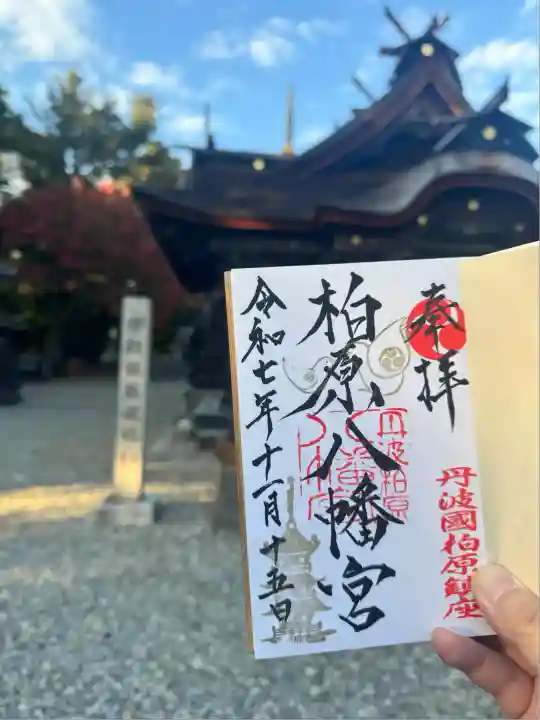 奉拝
丹波國柏原鎮座
柏原八幡宮
丹波柏原
八幡宮
令和七年十一月十五日